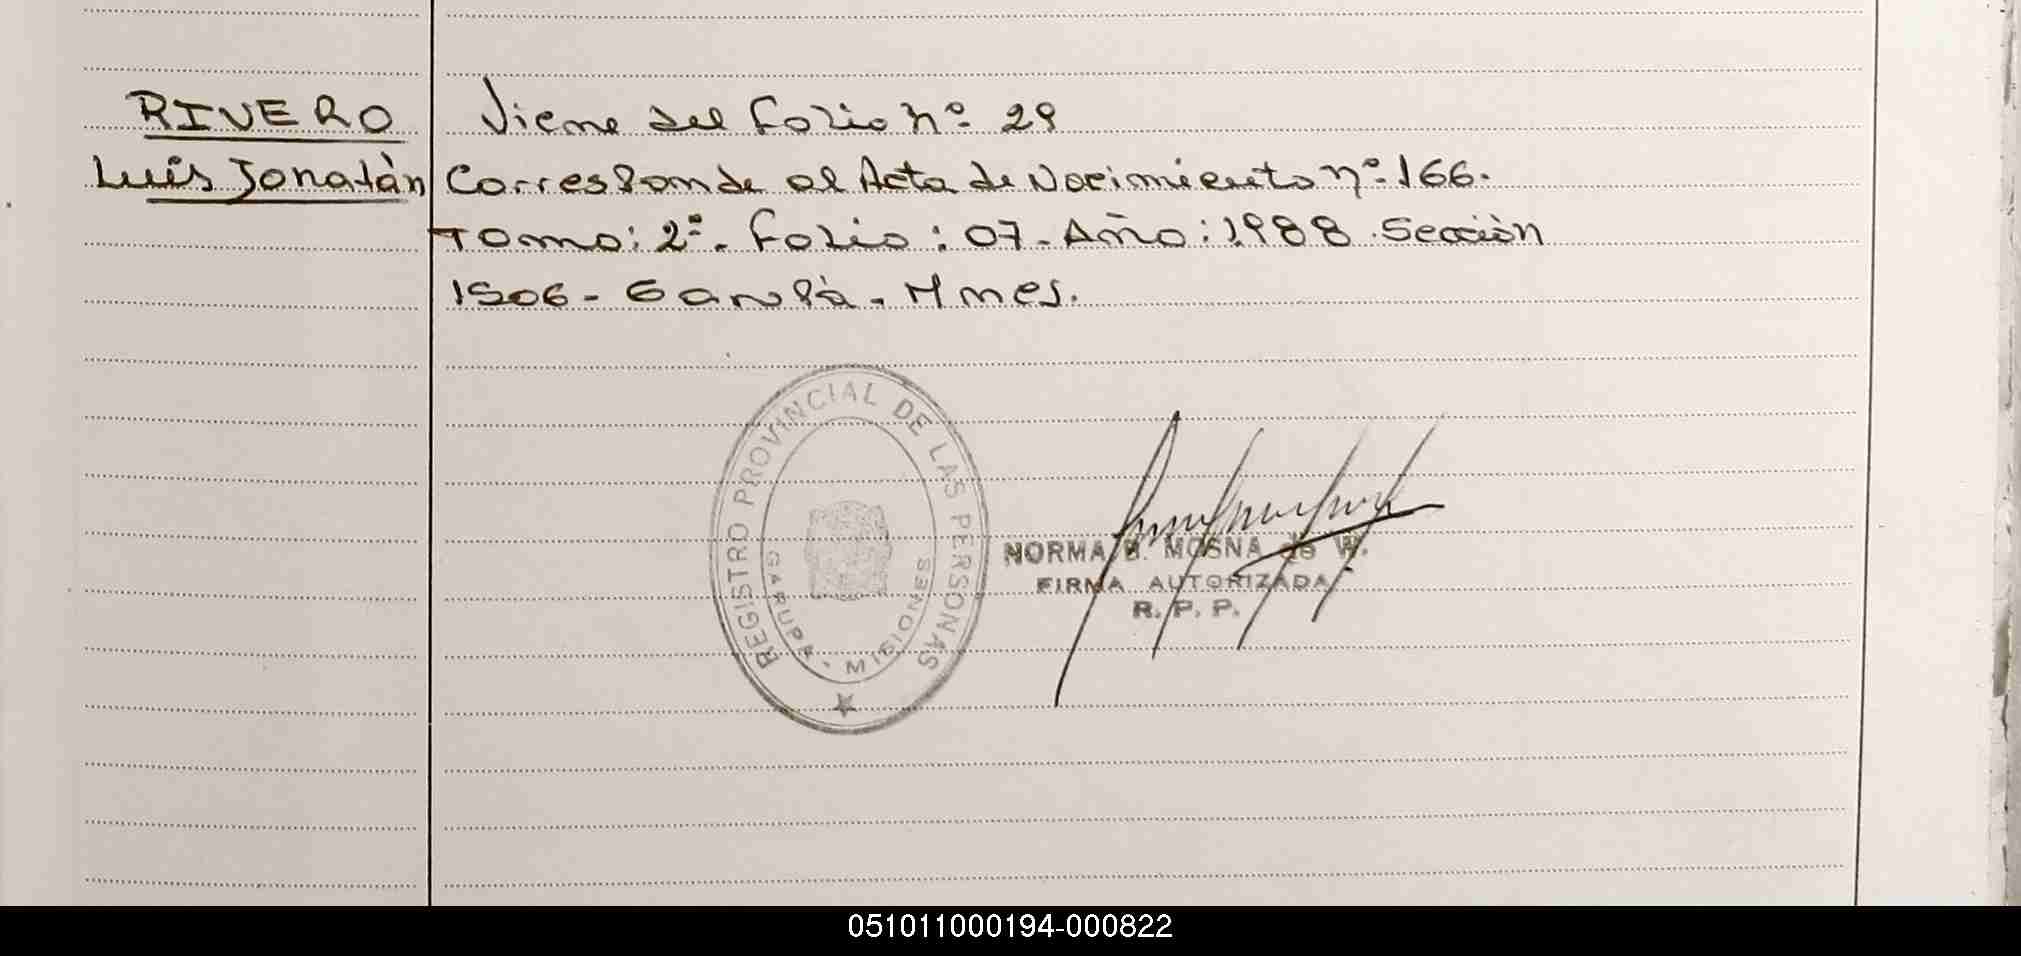 RIVERO
Luis Jonatàn
Viene del Folio nº 29
Corresponde al Acta de Nacimiento nº 166.
Tomo: 2º. Folio: 07. Año: 1988. Secciòn
1506 - Garupà. Mnes.
REGISTRO PROVINCIAL DE LAS PERSONAS
GARUPA - MISIONES
NORMA B. MOSNA de W.
FIRMA AUTORIZADA
R. P. P.
051011000194-000822